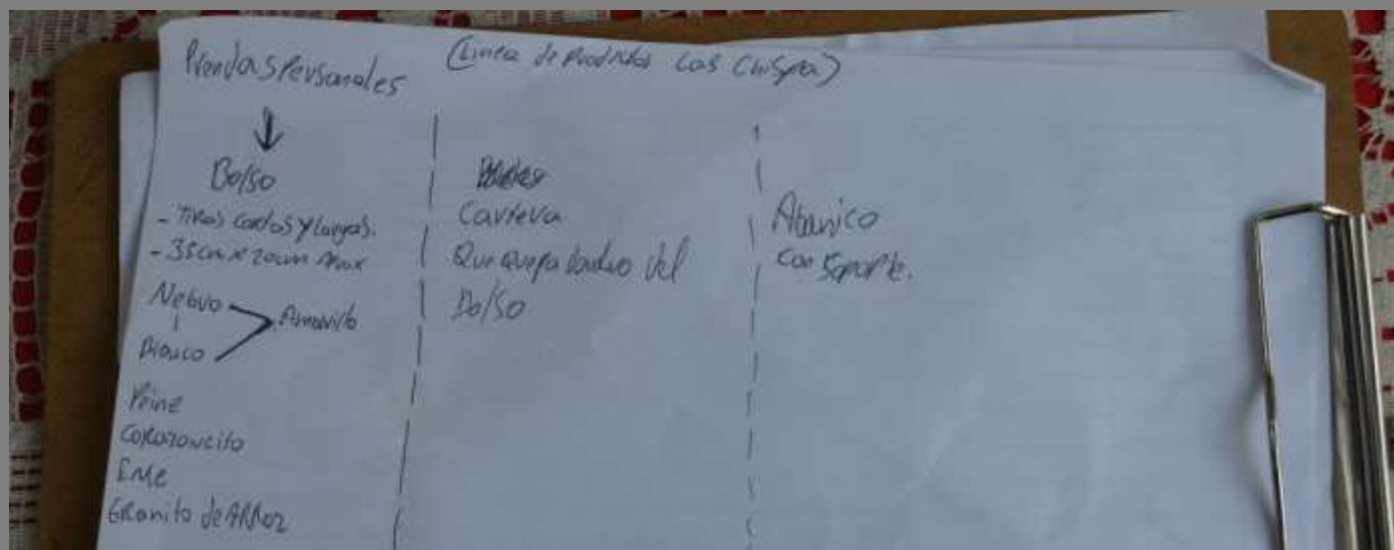 Prendas Personales
(Linea de Productos Las Chispa)
Bolso
- Tiras cortas y largas.
- 35cm x 20cm Max
Negro
Amarillo
Blanco
Peine
Corazoncito
Eme
Granito de Arroz
Cartera
Que quepa dentro del
Bolso
Abanico
Con Soporte.